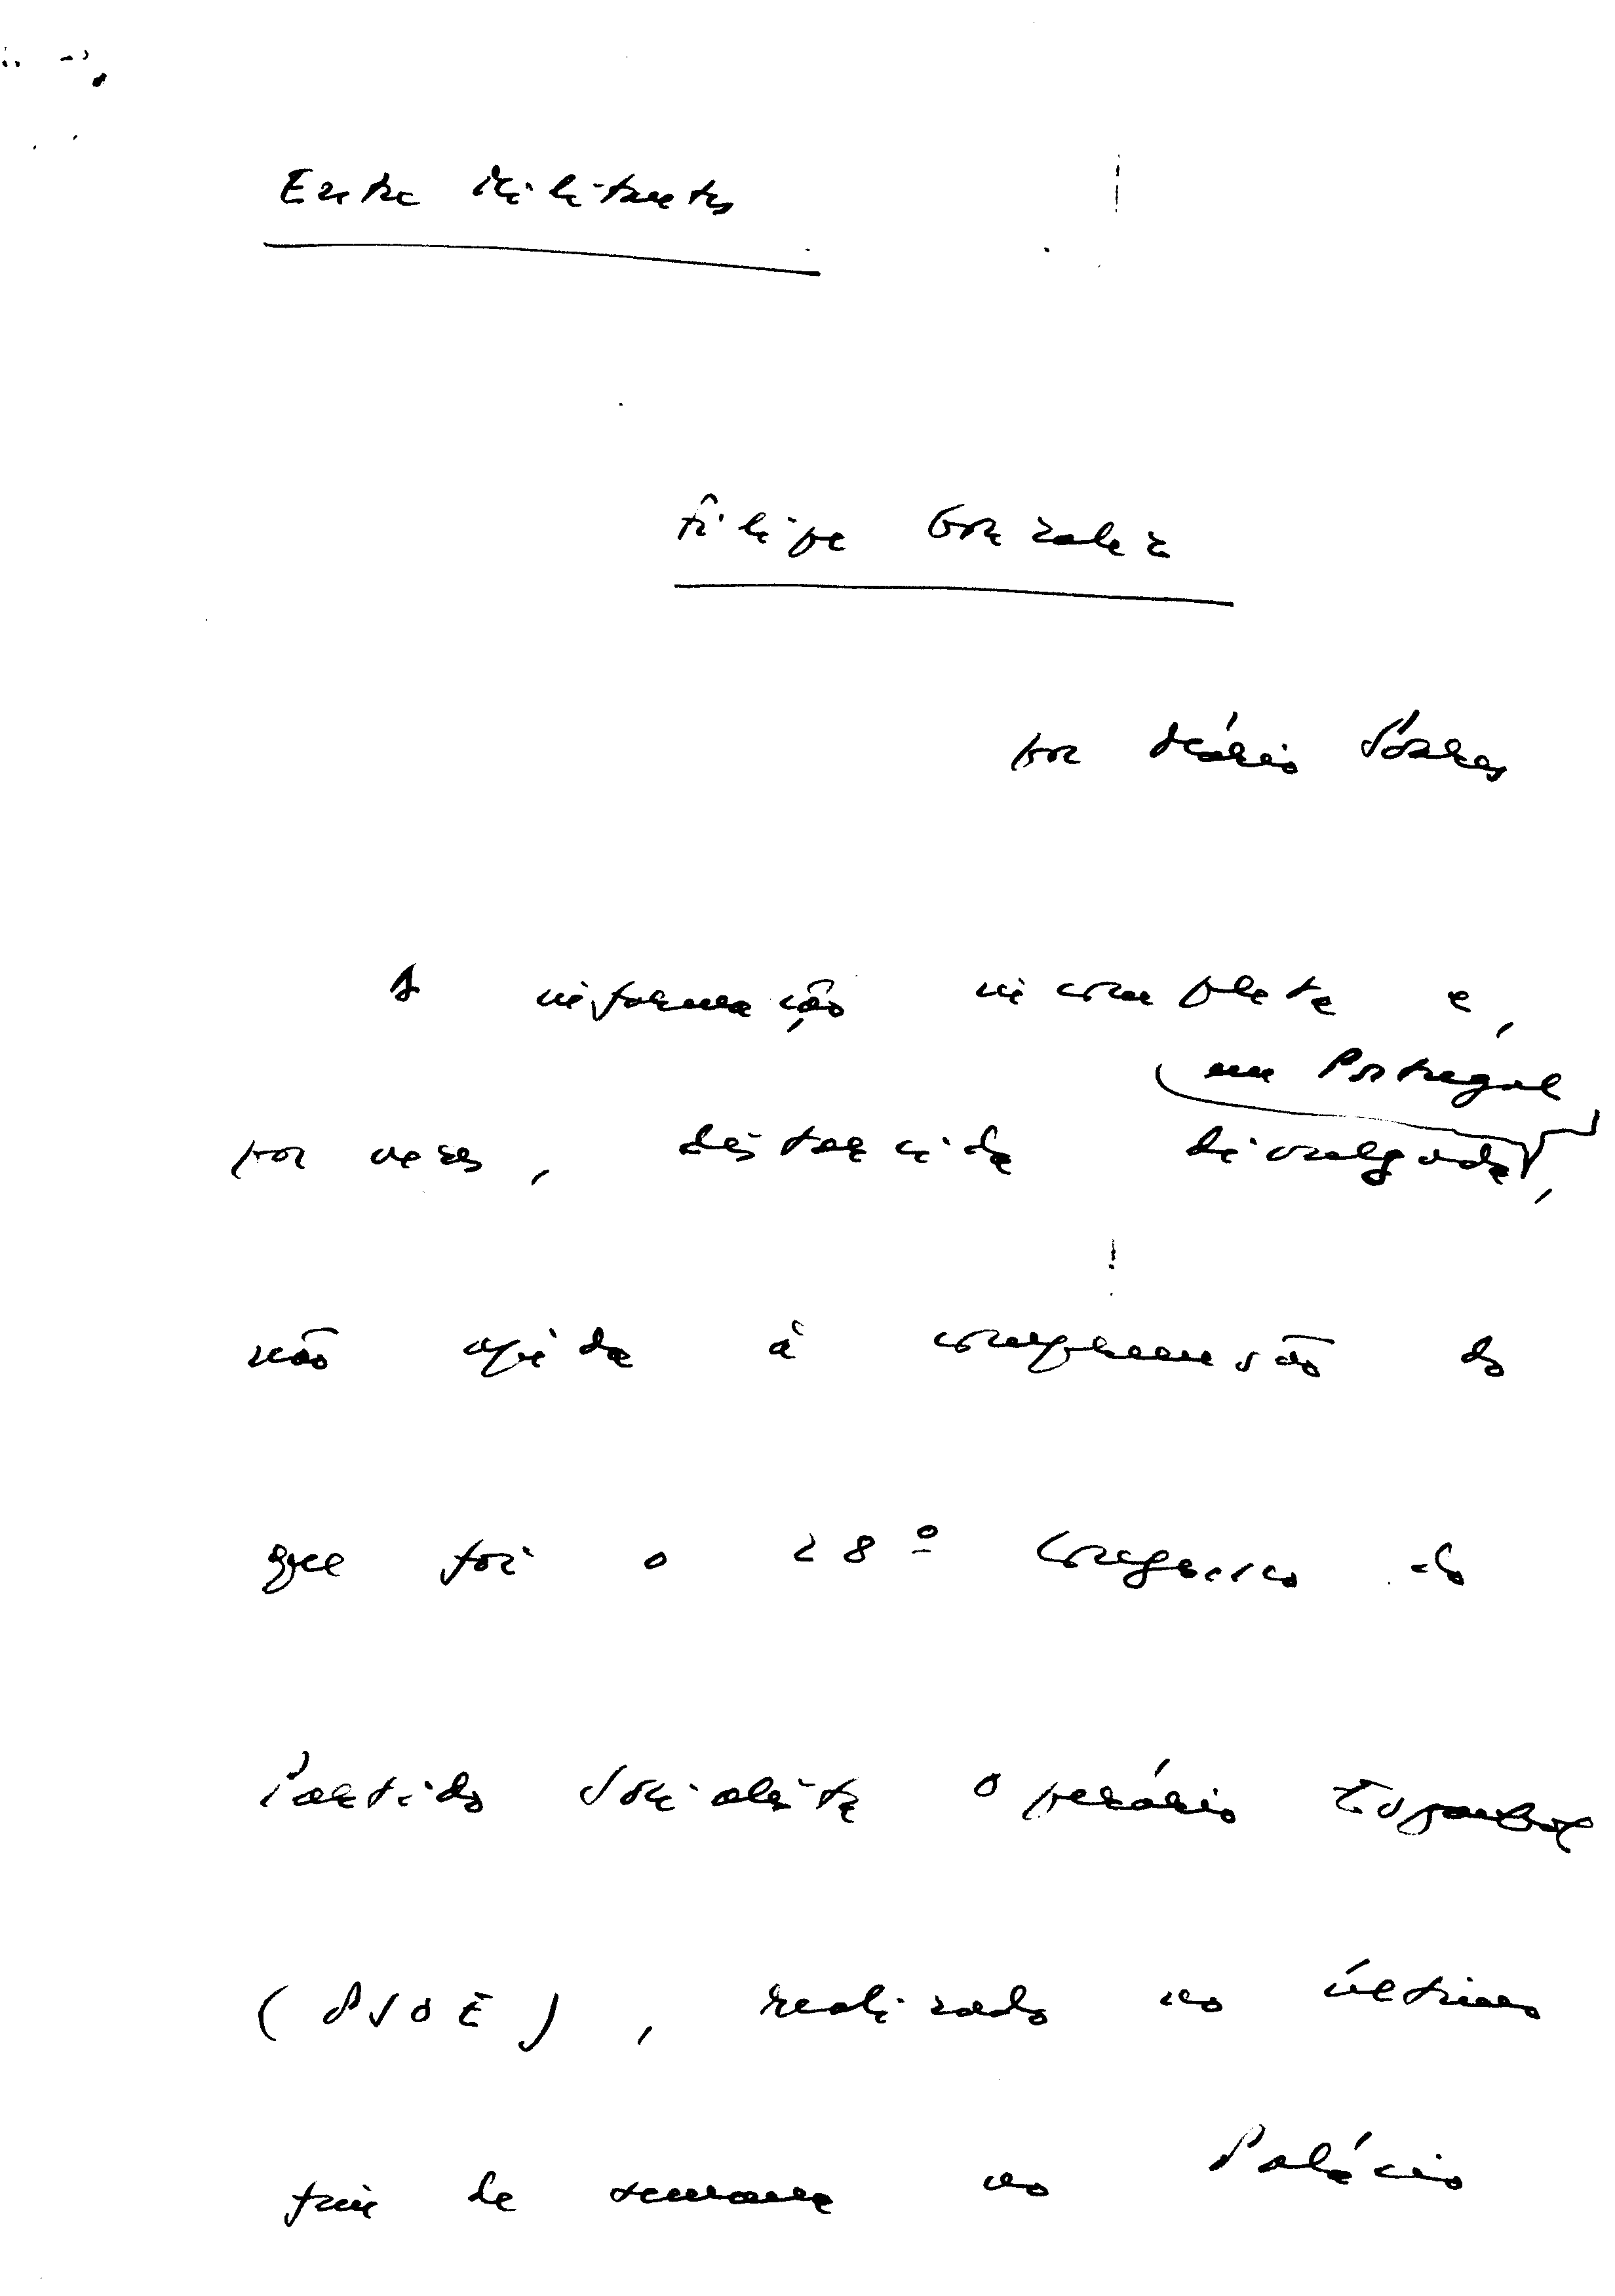 Entre Militantes
Filipe Gonzalez
por Mário Soares
A informação incompleta e,
em Portugal
por vezes, distorcida divulgada,
não ajuda à compreensão do
que foi o 28º Congresso do
Partido Socialista Operário Espanhol
(PSOE), realizado no último
fim de semana no Palácio